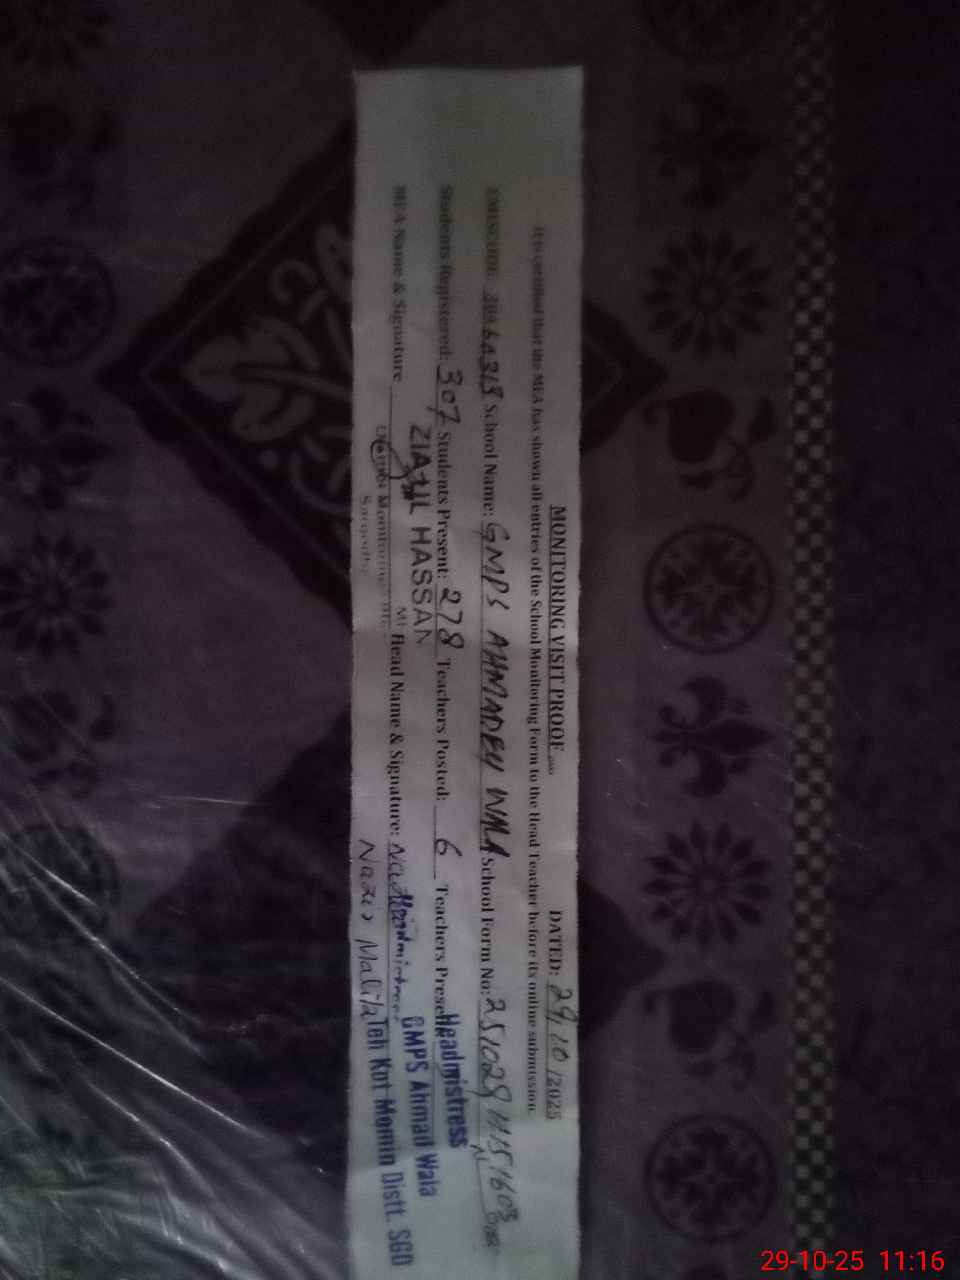 MONITORING VISIT PROOF DATED: 29/10/2025
It is certified that the MEA has shown all entries of the School Monitoring Form to the Head Teacher before its online submission.
EMISCODE: School Name: GMPS AHMADEY WALA School Form No:
Students Registered: 307 Students Present: 278 Teachers Posted: 6 Teachers Present:
MEA Name & Signature Head Name & Signature:
ZIA-UL HASSAN
Monitoring
Sargodha
Headmistress
GMPS Ahmad Wala
Teh Kot Momin Distt. SGD
29-10-25 11:16